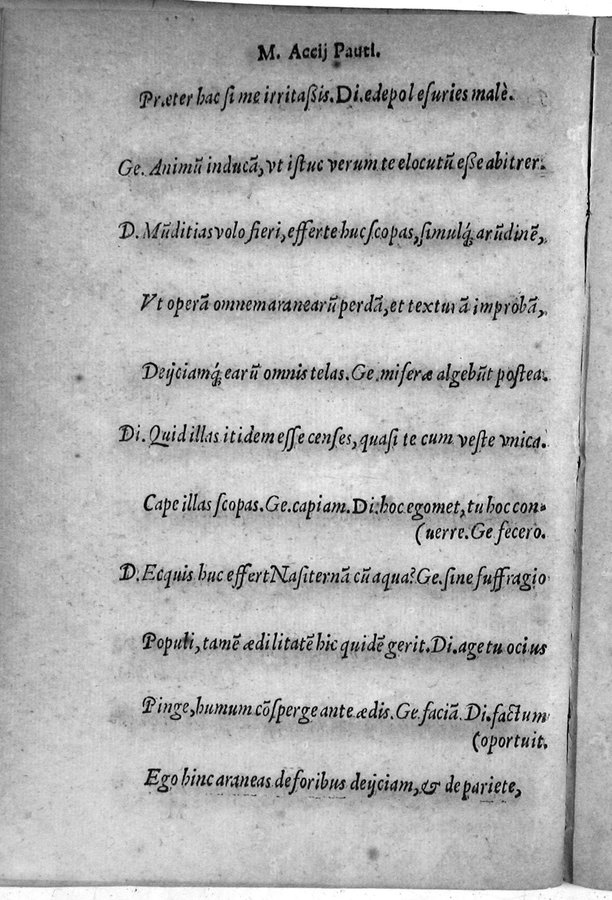 M. Accij Pauti.
Præter hac si me irritaßis. Di. edepol esuries malè.
Ge. Animũ inducã, vt istuc verum te elocutũ eße abitrer.
D. Mũditias volo fieri, efferte huc scopas, simulq́; arũdinẽ,
Vt operã omnem aranearũ perdã, et texturã improbã,
Deijciamq́; earũ omnis telas. Ge. miseræ algebũt postea.
Di. Quid illas itidem esse censes, quasi te cum veste vnica.
Cape illas scopas. Ge. capiam. Di. hoc egomet, tu hoc con-
(uerre. Ge fecero.
D. Ecquis huc effert Nasiternã cũ aqua? Ge. sine suffragio
Populi, tamẽ ædilitatẽ hic quidẽ gerit. Di. age tu ocius
Pinge, humum cõsperge ante ædis. Ge. faciã. Di. factum
(oportuit.
Ego hinc araneas de foribus deijciam, & de pariete,